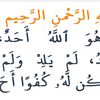 هِ الرَّحْمَنِ الرَّحِيمِ
هُوَ اللَّهُ أَحَدٌ
دُ، لَمْ يَلِدْ وَلَمْ
كُن لَّهُ كُفُوًا أَحَ